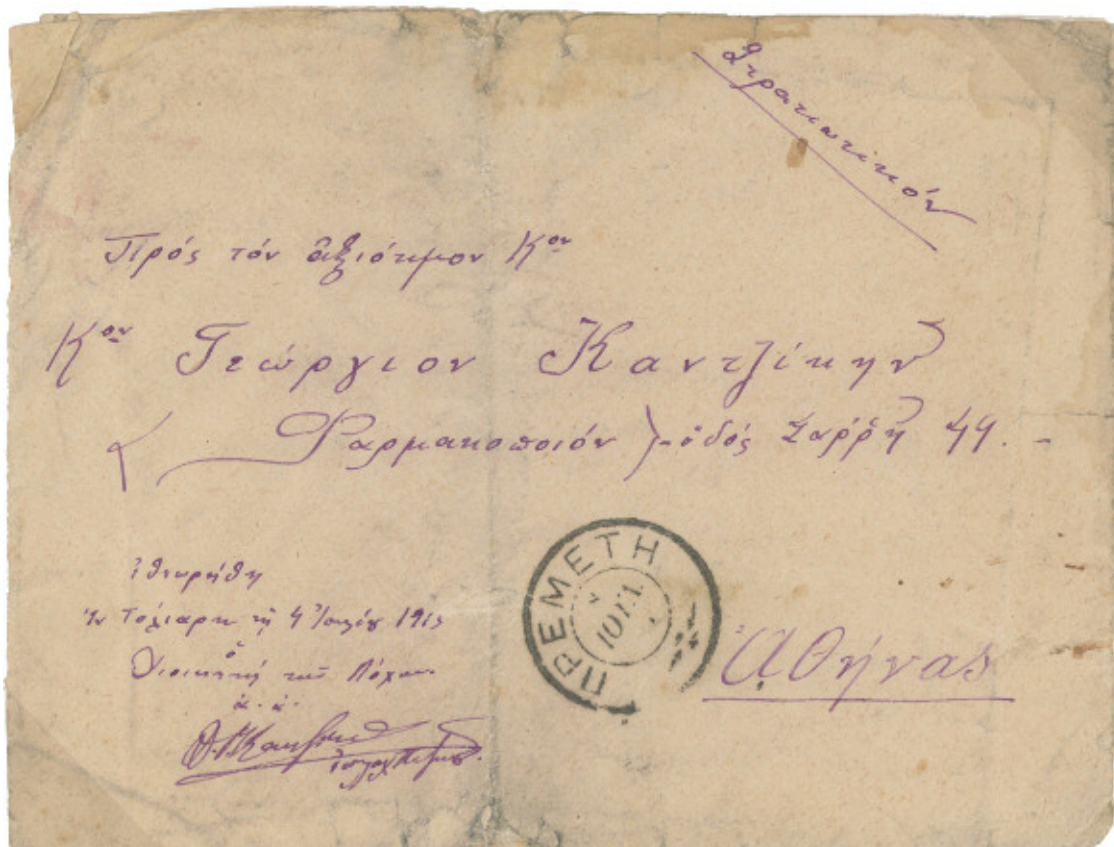 Στρατιωτικόν
Πρός τόν ἀξιότιμον Κον
Κον Γεώργιον Καντζίκην
(Φαρμακοποιόν)-ὁδός Σαῤῥῆ 44. -
Ἐθεωρήθη
τῇ 4 1915
ὁ
Διοικητὴς τοῦ Λόχου
ἀ. ἀ.
ΠΡΕΜΕΤΗ
Ἀθήνας